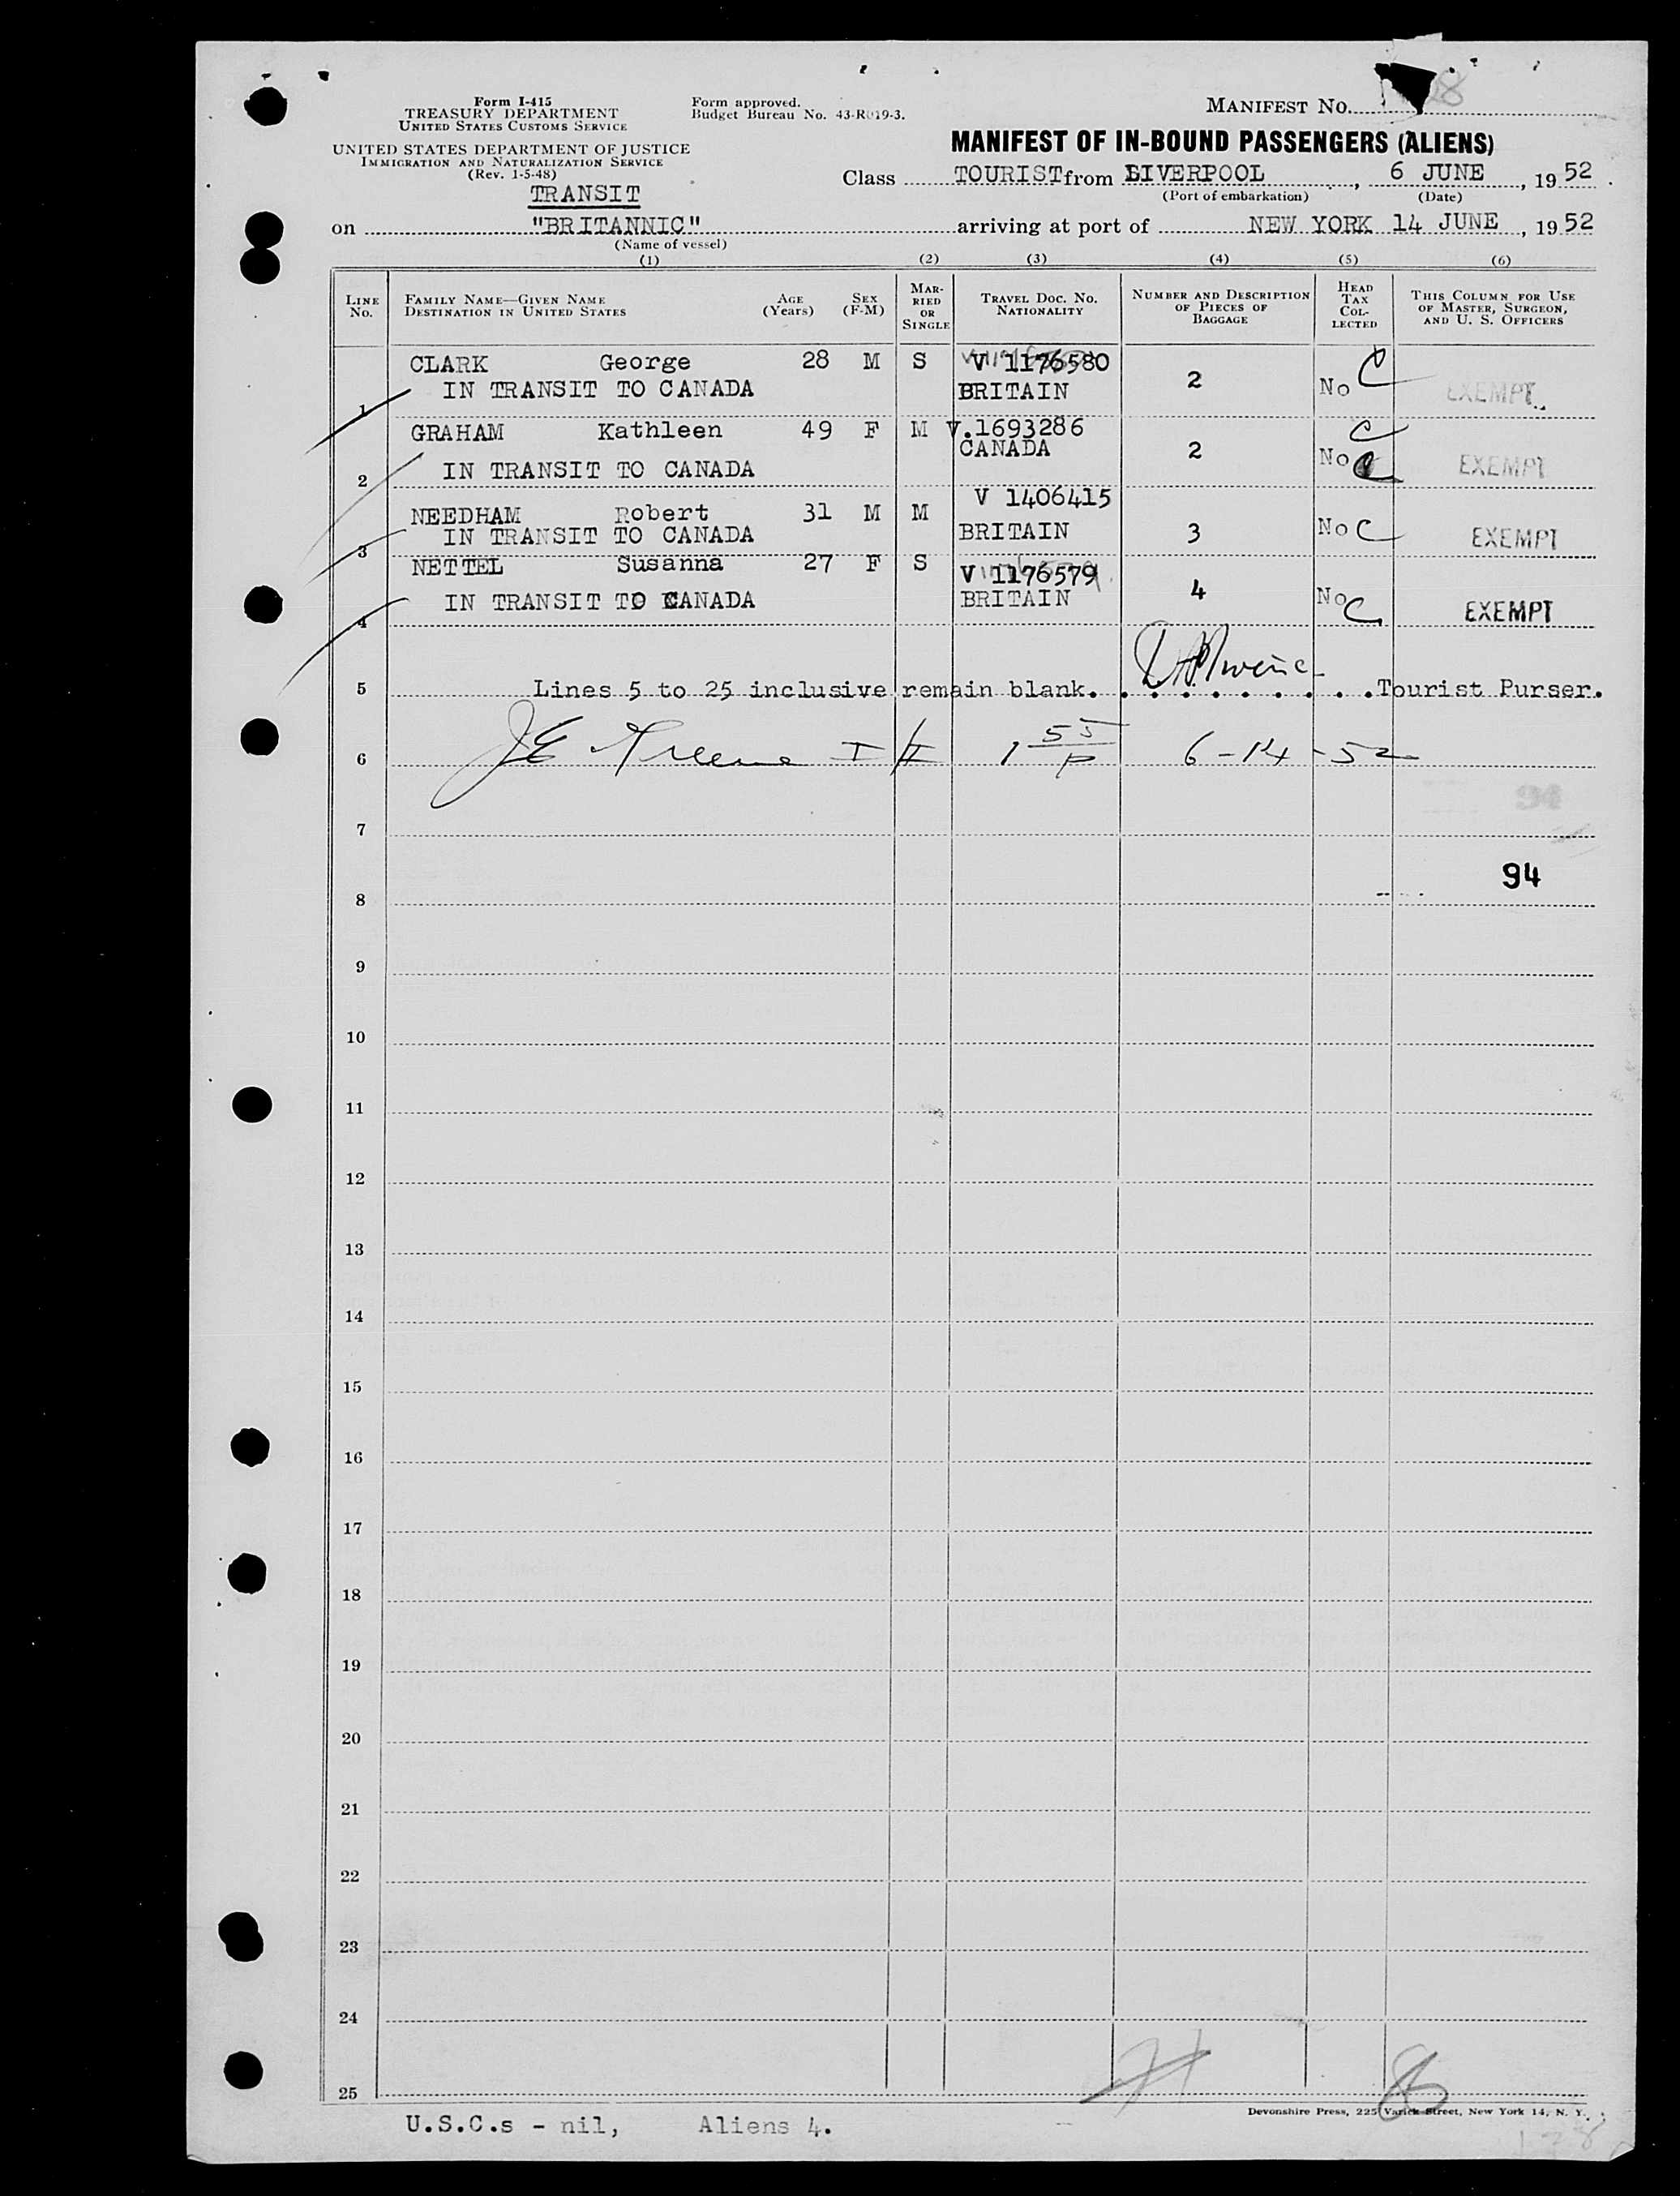 Form I-415
TREASURY DEPARTMENT
UNITED STATES CUSTOMS SERVICE
UNITED STATES DEPARTMENT OF JUSTICE
IMMIGRATION AND NATURALIZATION SERVICE
(Rev. 1-5-48)
Form approved.
Budget Bureau No. 43-R019-3.
MANIFEST NO.
MANIFEST OF IN-BOUND PASSENGERS (ALIENS)
Class TOURIST from LIVERPOOL, 6 JUNE, 1952.
(Port of embarkation) (Date)
TRANSIT
on "BRITANNIC" arriving at port of NEW YORK 14 JUNE, 1952
(Name of vessel)
(1) (2) (3) (4) (5) (6)
LINE NO. FAMILY NAME—GIVEN NAME DESTINATION IN UNITED STATES AGE (Years) SEX (F-M) MARRIED OR SINGLE TRAVEL DOC. NO. NATIONALITY NUMBER AND DESCRIPTION OF PIECES OF BAGGAGE HEAD TAX COLLECTED THIS COLUMN FOR USE OF MASTER, SURGEON, AND U. S. OFFICERS
CLARK George 28 M S V 1176580
1 IN TRANSIT TO CANADA BRITAIN 2 No C EXEMPT
GRAHAM Kathleen 49 F M V.1693286
CANADA
2 IN TRANSIT TO CANADA 2 No C EXEMPT
V 1406415
NEEDHAM Robert 31 M M
3 IN TRANSIT TO CANADA BRITAIN 3 No C EXEMPT
NETTEL Susanna 27 F S V 1176579
4 IN TRANSIT TO CANADA BRITAIN 4 No C EXEMPT
5 Lines 5 to 25 inclusive remain blank. . . . . . . . . .Tourist Purser.
6 J E Greene I I 1 55 p 6-14-52
94
7
94
8
9
10
11
12
13
14
15
16
17
18
19
20
21
22
23
24
25
Devonshire Press, 225 Varick Street, New York 14, N. Y.
U.S.C.s - nil, Aliens 4.
178